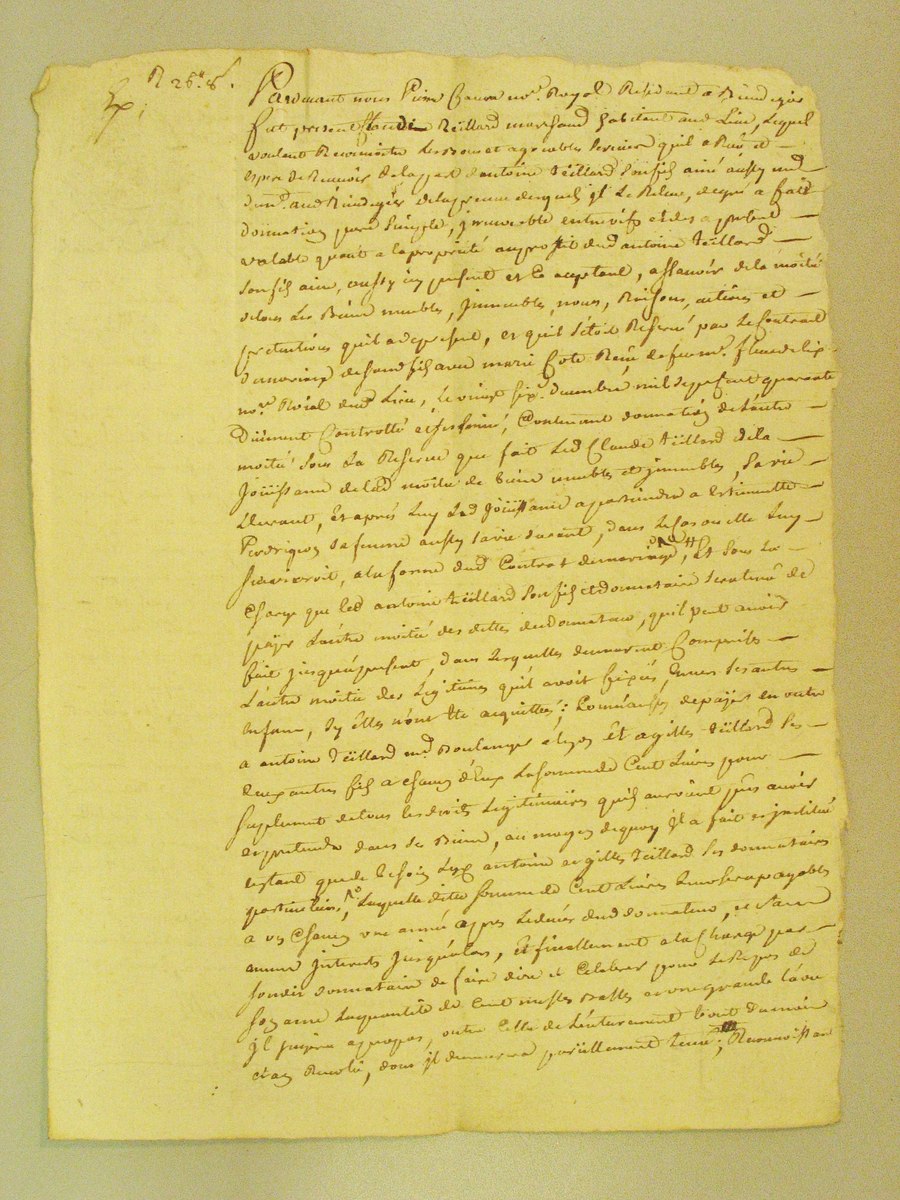 R 26ᵘ 8ˢ.
Pardevant nous Pierre no.re Royal Residant a
fut present Claude Teïllard marchand habitant aud Lieu, Lequel
voulant Reconnoitre Les bons et agreables services qu'il a Reçû et
espere de Recevoir de la part d'antoine teïllard son fils ainé aussy md
dem.t aud de la preuve desquels il Le Releve, de gré a fait
donnation pure simple, jrrevocable entre vifs et des a present
valable quant a la proprieté au proffit dud antoine teïllard
son fils ainé, aussy jcy present et Ce aceptant, assavoir de la moitié
de tous Les Biens meubles, jmmeubles, noms, Raisons, actions et
pretentions qu'il a de present, et qu'il s'étoit Reservé par Le Contrat
de mariage de sond fils avec marie Cote Reçû de feu m.e
no.re Roïal dud Lieu, Le vingt six.e decembre mil sept cent quarante
Düement Controllé et jnsinué, Contenant donnation de L'autre
moitié sous La Reserve que fait Led Claude teïllard de la
Joüissance de lad moitié de biens meubles et jmmeubles, sa vie
Durant, et aprés Luy Lad Joüissance apartiendra a Estiennette
Perdrigon sa femme aussy sa vie durant, dans Le Cas ou elle Luy
survivroit, a la forme dud Contrat de mariage, Et sous La
Charge que led antoine teïllard son fils et donnataire sera tenu de
païer L'autre moitié des dettes du donnateur, qu'il peut avoir
fait jusqu'a present, dans Lesquelles demeurent Comprises
L'autre moitié des Légitimes qu'il avoit fixées, Envers ses autres
Enfans, sy elles n'ont été aquittées; Comme aussy de païer en outre
a antoine teïllard md Boulanger a Lyon Et a gilles teïllard ses
deux autres fils a chacun d'Eux La somme de Cent Livres pour
suplement de tous les droits Legitimaires qu'ils auroient pûs avoir
et pretendre dans ses Biens, au moyen de quoy il a fait et jnstitué
en tant que de besoin Lesd antoine et gilles teïllard ses donnataires
particuliers, Laquelle ditte somme de Cent Livres Leur sera payable
a un Chacun une année apprés Le decés dud donnateur, et sans
aucun jnterests jusqu'alors, Et finallement a la Charge par
sondit donnataire de faire dire et Celebrer pour Le Repos de
son ame La quantité de Cent messes Basses et une grande L'ors
jl jugera apropos, outre Celle de L'enterement bout du mois
et an Revolu, dont jl demeurera pareïllement tenu; Reconnoissan